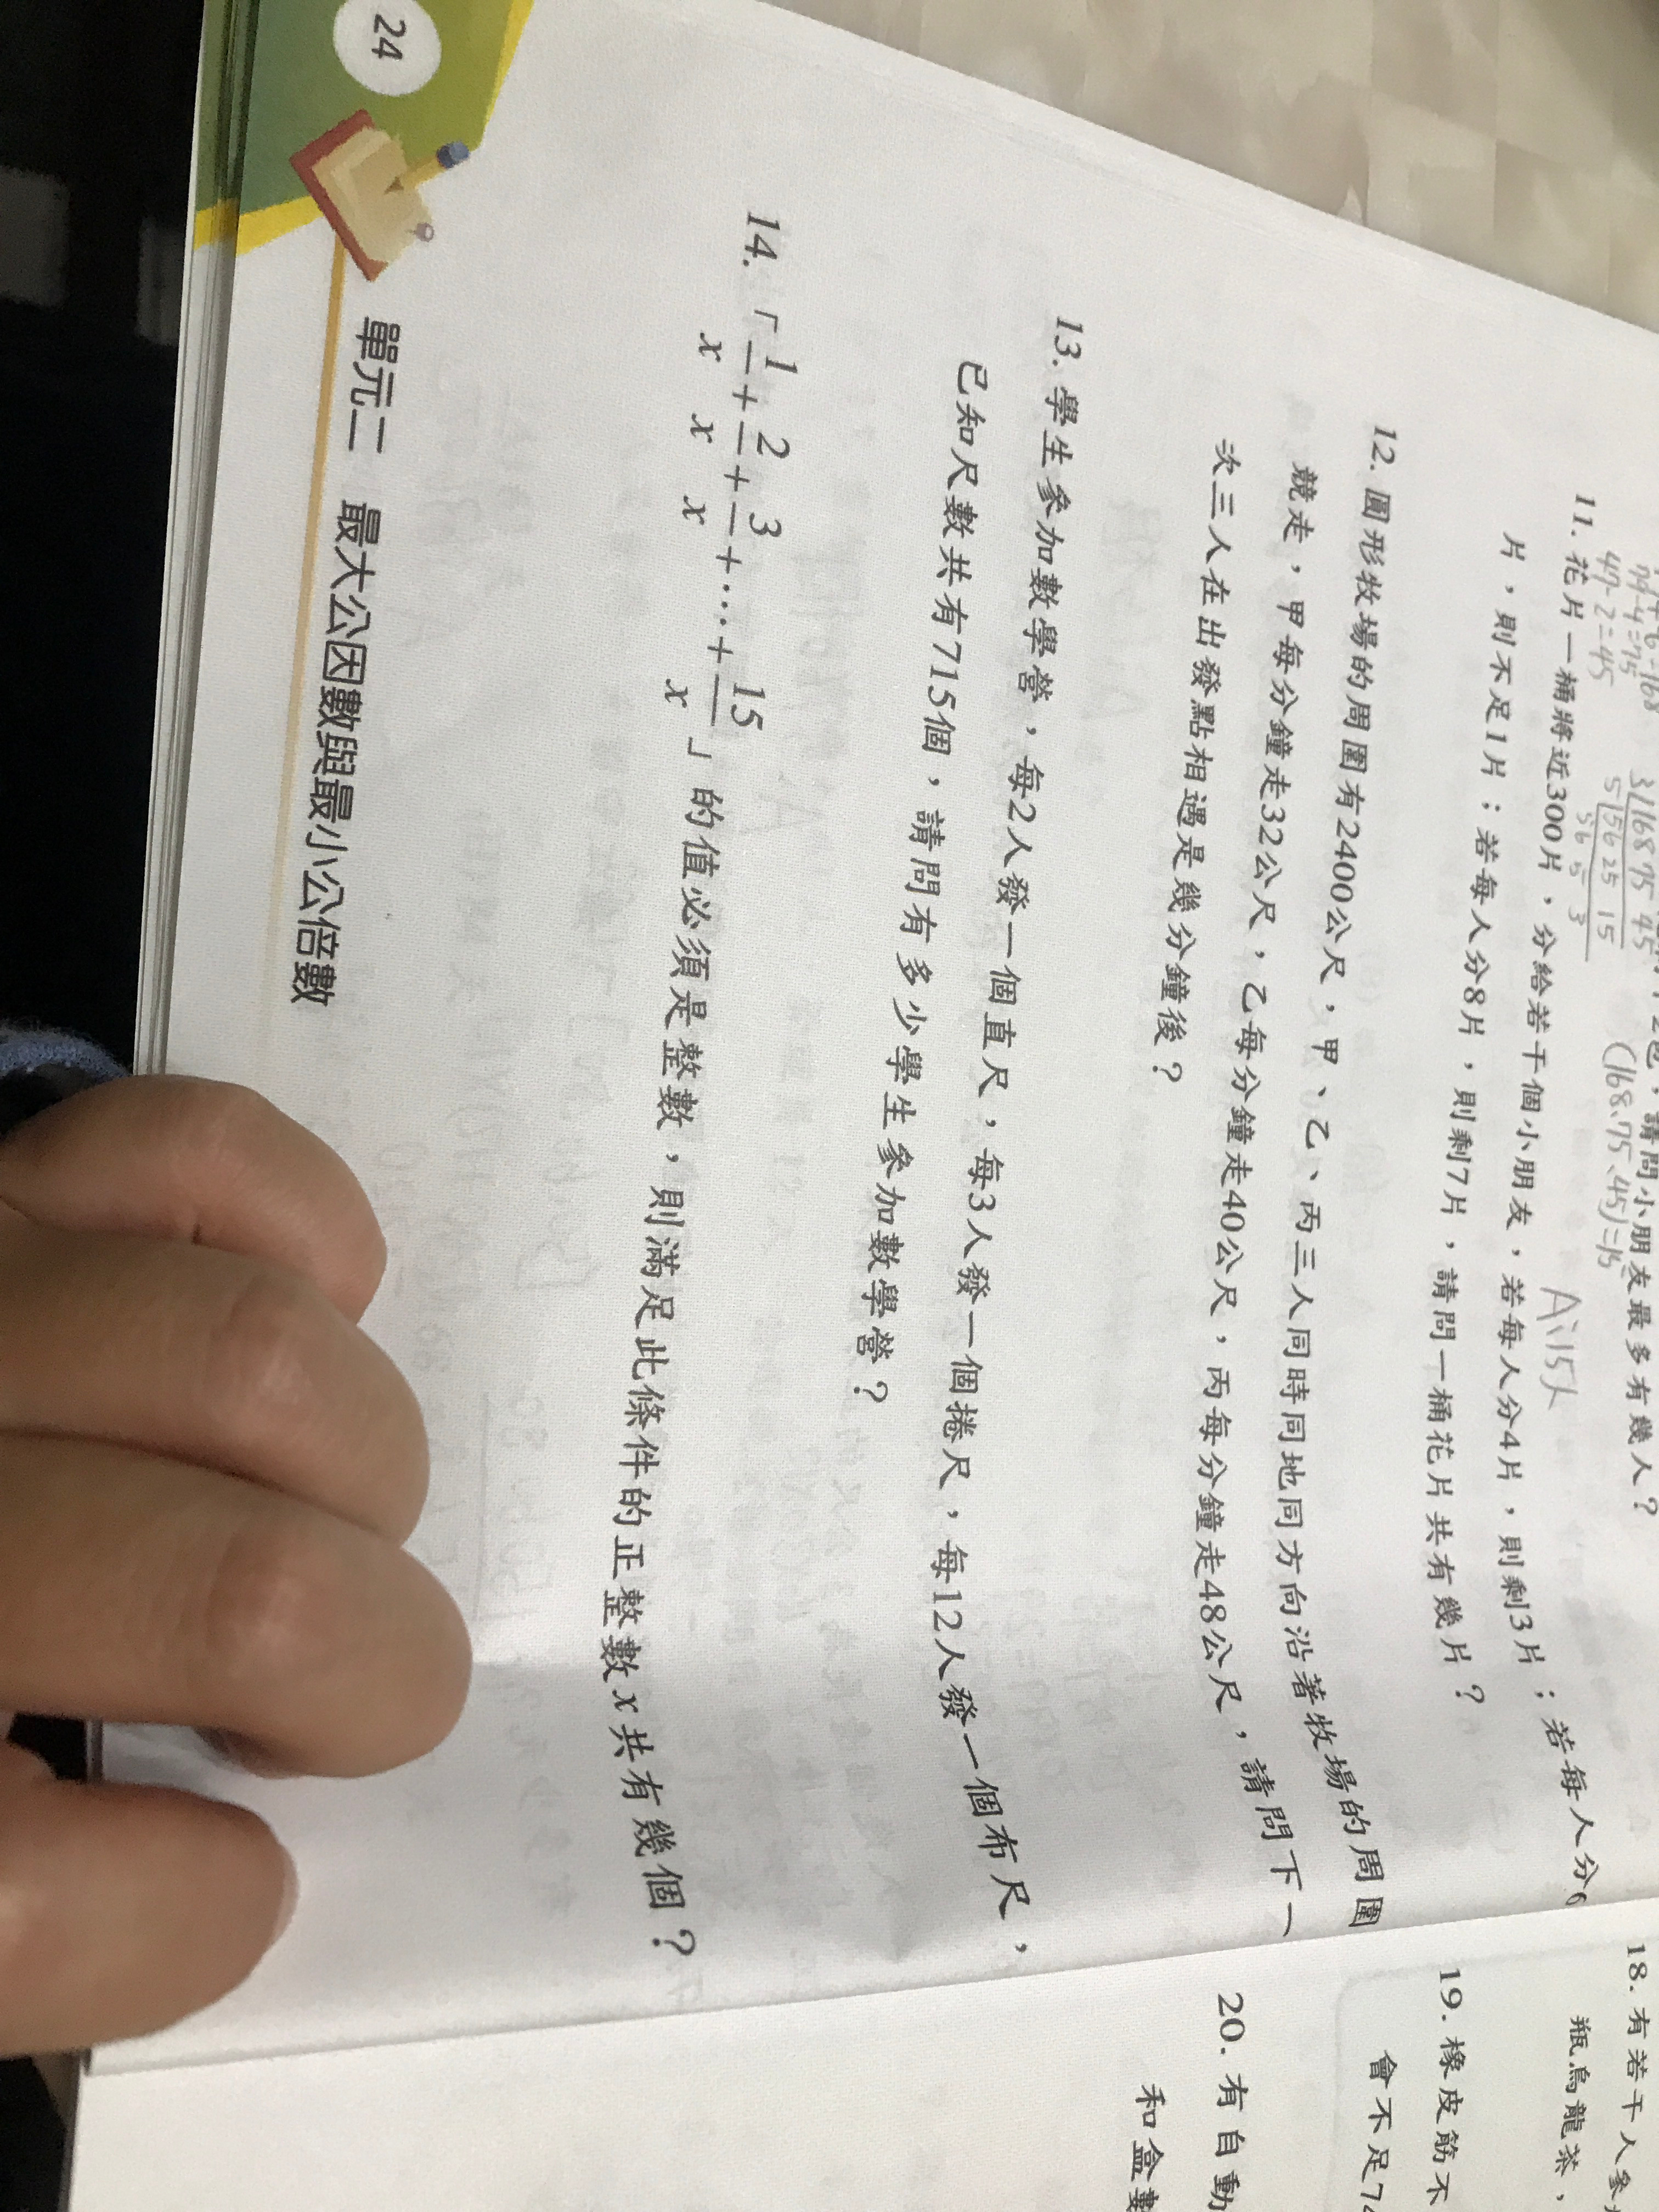 請問小朋友最多有幾人？
3 168 75 45
5 56 25 15
56 5 3
47-2=45
(168、75、45)=15
A:15人
11. 花片一桶將近300片，分給若干個小朋友，若每人分4片，則剩3片；若每人分6
片，則不足1片；若每人分8片，則剩7片，請問一桶花片共有幾片？
12. 圓形牧場的周圍有2400公尺，甲、乙、丙三人同時同地同方向沿著牧場的周圍
競走，甲每分鐘走32公尺，乙每分鐘走40公尺，丙每分鐘走48公尺，請問下一
次三人在出發點相遇是幾分鐘後？
13. 學生參加數學營，每2人發一個直尺，每3人發一個捲尺，每12人發一個布尺，
已知尺數共有715個，請問有多少學生參加數學營？
14.「1/x+2/x+3/x+…+15/x」的值必須是整數，則滿足此條件的正整數x共有幾個？
24
單元二 最大公因數與最小公倍數
18. 有若干人參
瓶烏龍茶，
19. 橡皮筋不
會不足7
20. 有自動
和盒數